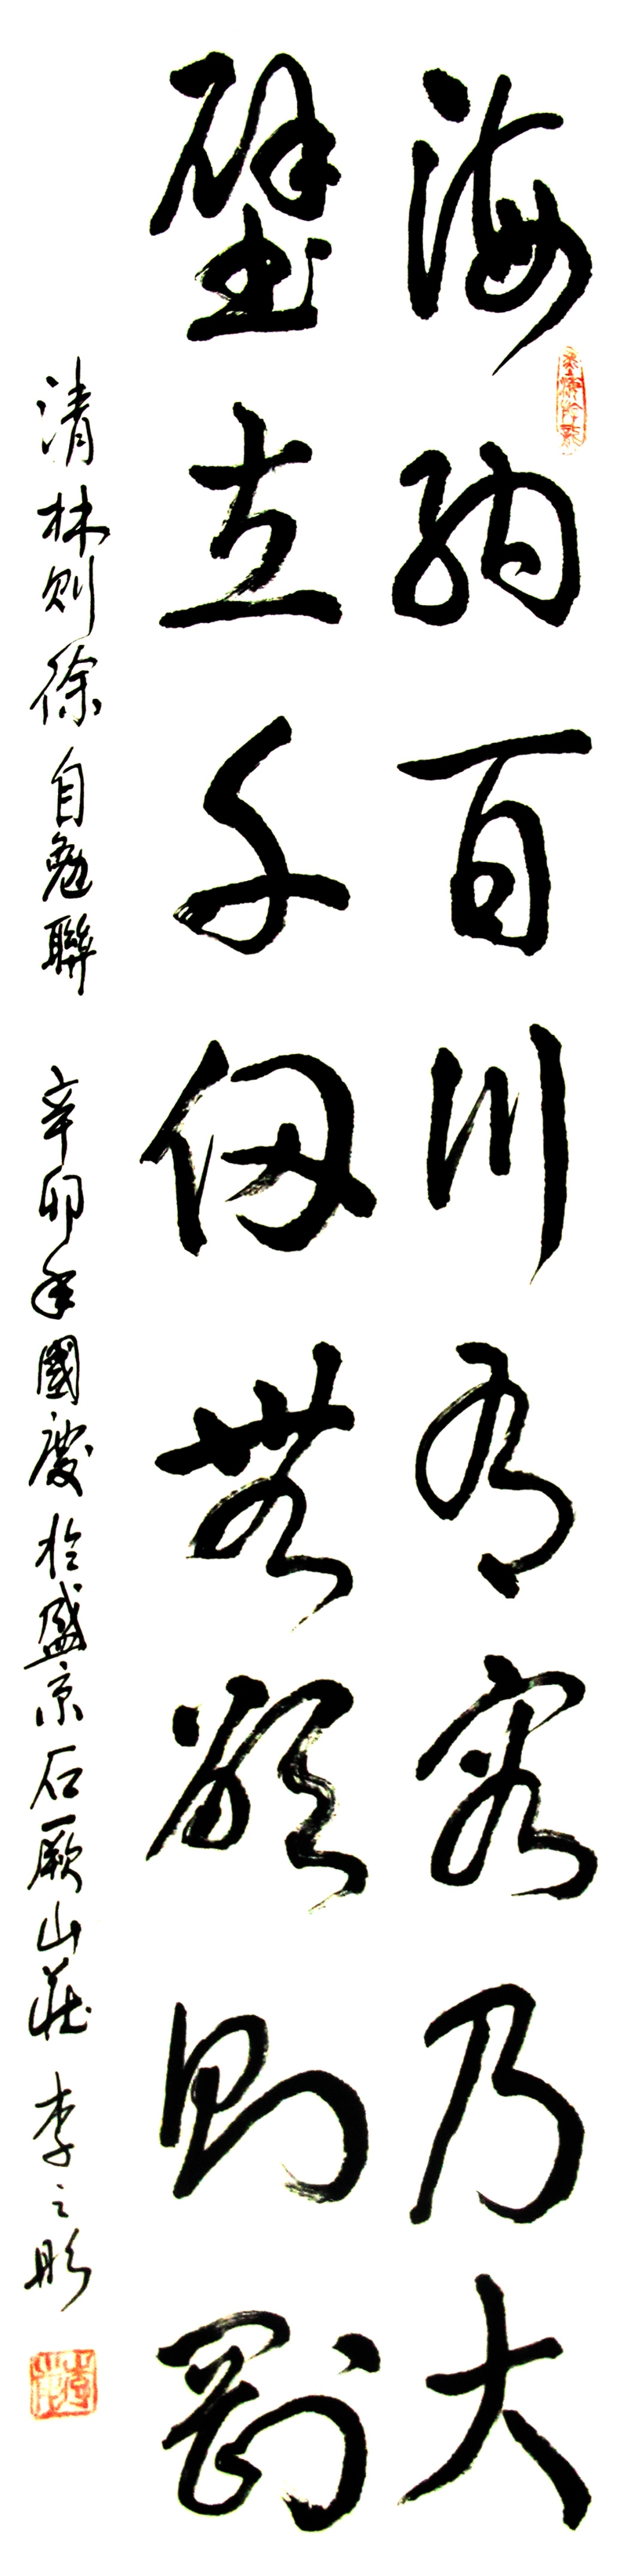 海納百川有容乃大
壁立千仞無欲則剛
清林则徐自勉聯 辛卯年國慶於盛京石厥山莊 李之彤